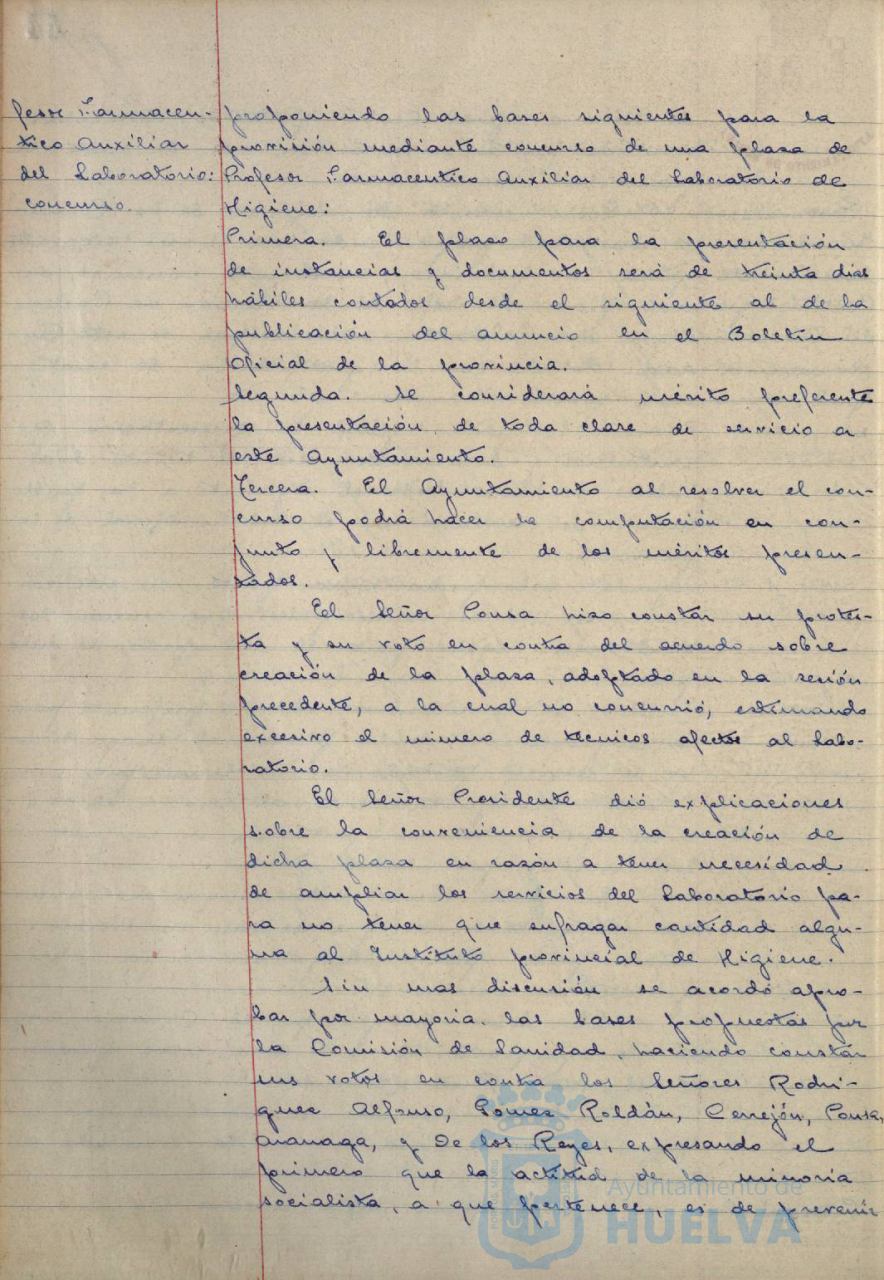 fesor Farmaceu-
tico Auxiliar
del Laboratorio:
concurso.
proponiendo las bases siguientes para la
provisión mediante concurso de una plaza de
Profesor Farmaceutico Auxiliar del Laboratorio de
Higiene:
Primera. El plaso para la presentación
de instancias y documentos será de treinta dias
hábiles contados desde el siguiente al de la
publicación del anuncio en el Boletin
Oficial de la provincia.
Segunda. Se considerará mérito preferente
la presentación de toda clase de servicio a
este Ayuntamiento.
Tercera. El Ayuntamiento al resolver el con-
curso podrá hacer la computación en con-
junto y libremente de los méritos presen-
tados.
El Señor Ponsa hizo constar su protes-
ta y su voto en contra del acuerdo sobre
creación de la plaza, adoptado en la sesión
precedente, a la cual no concurrió, estimando
excesivo el número de técnicos afectos al Labo-
ratorio.
El Señor Presidente dió explicaciones
sobre la conveniencia de la creación de
dicha plaza en razón a tener necesidad
de ampliar los servicios del Laboratorio pa-
ra no tener que sufragar cantidad algu-
na al Instituto provincial de Higiene.
Sin mas discusión se acordó apro-
bar por mayoria las bases propuestas por
la Comisión de Sanidad, haciendo constar
sus votos en contra los Señores Rodri-
guez Alfonso, Gomez Roldán, Cerrejón, Ponsa,
Aramaga, y De los Reyes, expresando el
primero que la actitud de la minoria
socialista, a que pertenece, es de prevenir
Ayuntamiento de
HUELVA